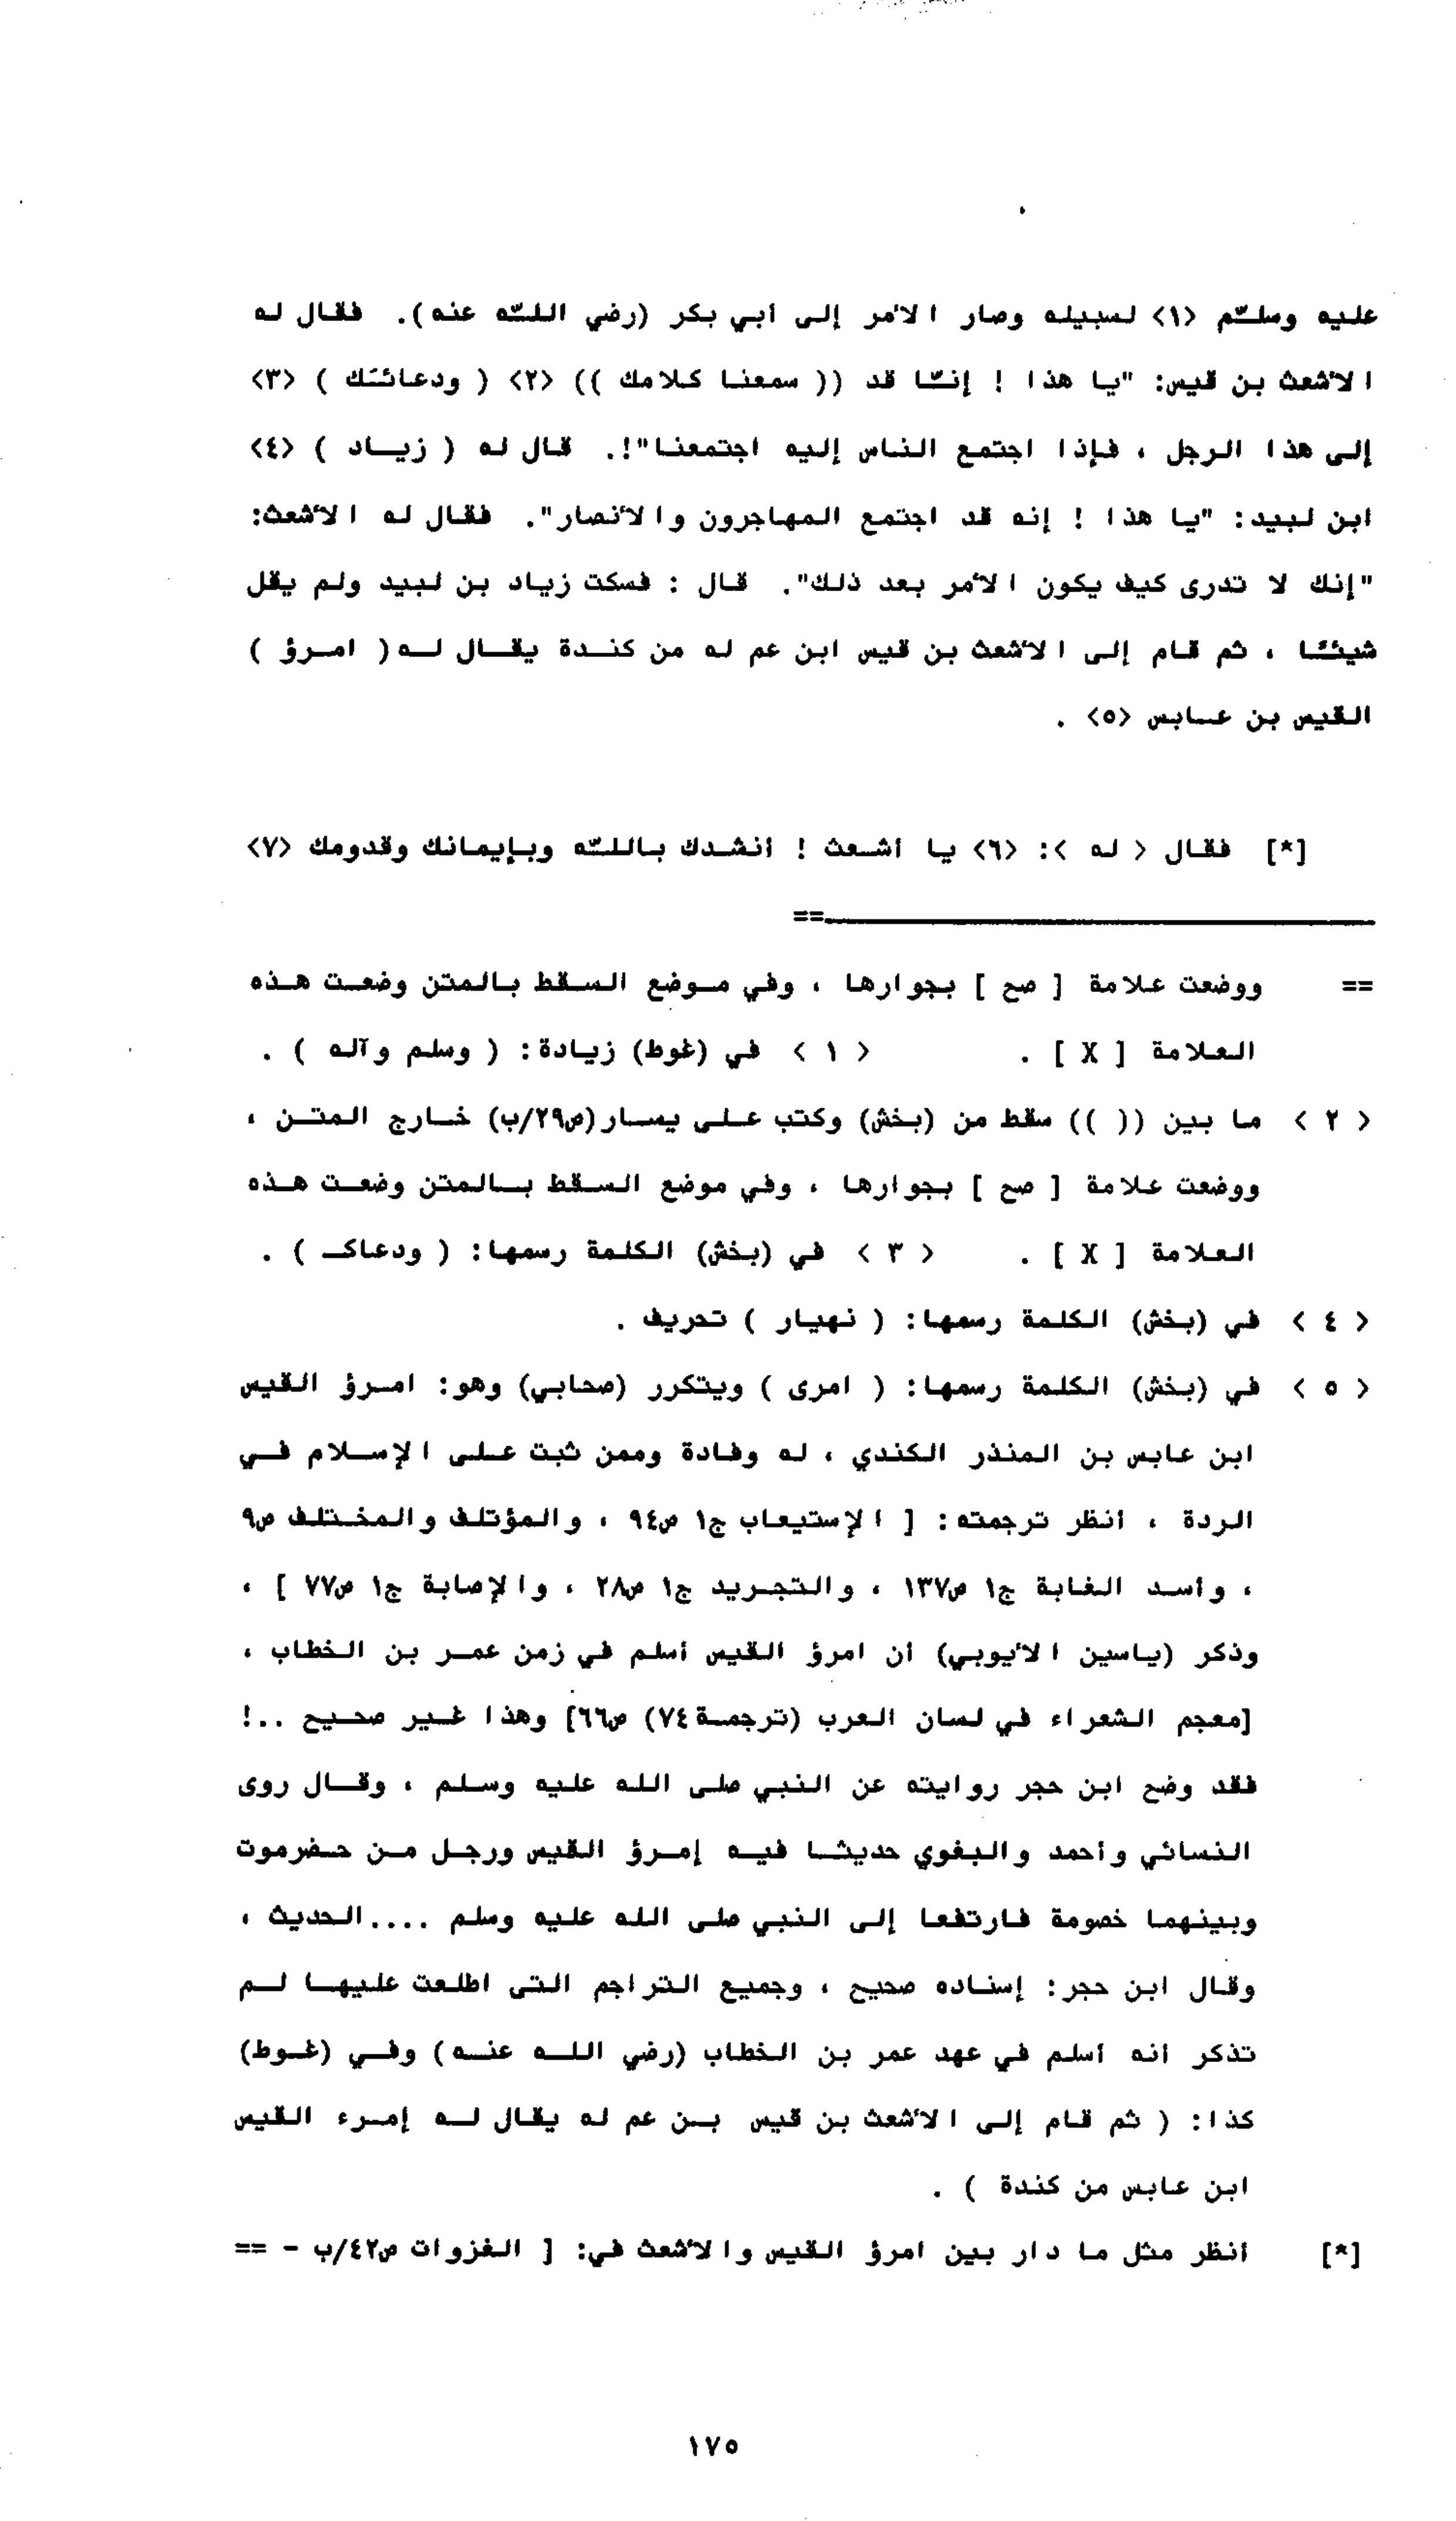 عليه وسلّم <١> لسبيله وصار الأمر إلى أبي بكر (رضي اللّه عنه). فقال له
الأشعث بن قيس: "يا هذا ! إنّا قد (( سمعنا كلامك )) <٢> ( ودعائك ) <٣>
إلى هذا الرجل ، فإذا اجتمع الناس إليه اجتمعنا"!. قال له ( زياد ) <٤>
ابن لبيد: "يا هذا ! إنه قد اجتمع المهاجرون والأنصار". فقال له الأشعث:
"إنك لا تدرى كيف يكون الأمر بعد ذلك". قال : فسكت زياد بن لبيد ولم يقل
شيئًا ، ثم قام إلى الأشعث بن قيس ابن عم له من كندة يقال له ( امرؤ )
القيس بن عابس <٥> .
[*] فقال < له >: <٦> يا أشعث ! أنشدك باللّه وبإيمانك وقدومك <٧>
==
== ووضعت علامة [ صح ] بجوارها ، وفي موضع السقط بالمتن وضعت هذه
العلامة [ X ] . < ١ > في (غوط) زيادة: ( وسلم وآله ) .
< ٢ > ما بين (( )) سقط من (بخش) وكتب على يسار (ص٢٩/ب) خارج المتن ،
ووضعت علامة [ صح ] بجوارها ، وفي موضع السقط بالمتن وضعت هذه
العلامة [ X ] . < ٣ > في (بخش) الكلمة رسمها: ( ودعاكـ ) .
< ٤ > في (بخش) الكلمة رسمها: ( نهيار ) تحريف .
< ٥ > في (بخش) الكلمة رسمها: ( امرى ) ويتكرر (صحابي) وهو: امرؤ القيس
ابن عابس بن المنذر الكندي ، له وفادة وممن ثبت على الإسلام في
الردة ، أنظر ترجمته: [ الإستيعاب ج١ ص٩٤ ، والمؤتلف والمختلف ص٩
، وأسد الغابة ج١ ص١٣٧ ، والتجريد ج١ ص٢٨ ، والإصابة ج١ ص٧٧ ] ،
وذكر (ياسين الأيوبي) أن امرؤ القيس أسلم في زمن عمر بن الخطاب ،
[معجم الشعراء في لسان العرب (ترجمة ٧٤) ص٦٦] وهذا غير صحيح ..!
فقد وضح ابن حجر روايته عن النبي صلى الله عليه وسلم ، وقال روى
النسائي وأحمد والبغوي حديثا فيه إمرؤ القيس ورجل من حضرموت
وبينهما خصومة فارتفعا إلى النبي صلى الله عليه وسلم ....الحديث ،
وقال ابن حجر: إسناده صحيح ، وجميع التراجم التى اطلعت عليها لم
تذكر أنه أسلم في عهد عمر بن الخطاب (رضي الله عنه) وفي (غوط)
كذا: ( ثم قام إلى الأشعث بن قيس بن عم له يقال له إمرء القيس
ابن عابس من كندة ) .
[*] أنظر مثل ما دار بين امرؤ القيس والأشعث في: [ الغزوات ص٤٢/ب - ==
١٧٥